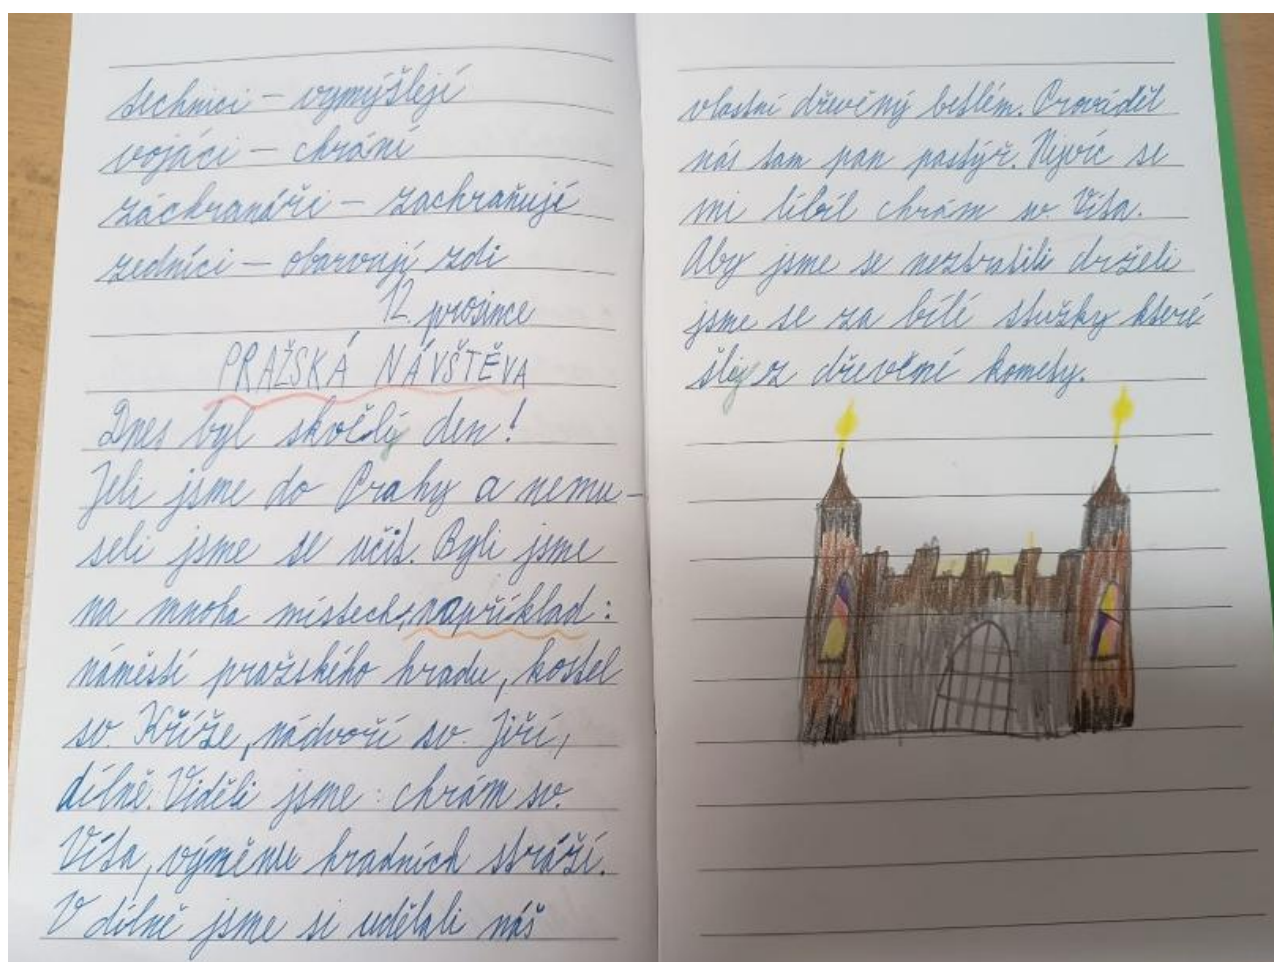 technici – vymýšlejí
vojáci – chrání
záchranáři – zachraňují
zedníci – obarvují zdi
12. prosince
PRAŽSKÁ NÁVŠTĚVA
Dnes byl skvělý den!
Jeli jsme do Prahy a nemu-
seli jsme se učit. Byli jsme
na mnoha místech, například:
náměstí pražského hradu, kostel
sv. Kříže, nádvoří sv. Jiří,
dílně. Viděli jsme: chrám sv.
Víta, výměnu hradních stráží.
V dílně jsme si udělali náš
vlastní dřevěný betlém. Prováděl
nás tam pan pastýř. Nejvíc se
mi líbil chrám sv. Víta.
Aby jsme se neztratili drželi
jsme se za bílé stužky které
šly z dřevěné komety.